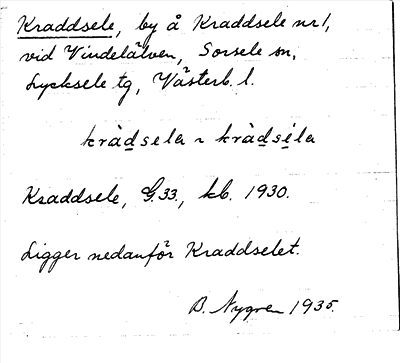 Kraddsele, by å Kraddsele nr 1,
vid Vindelälven, Sorsele sn,
Lycksele tg, Västerb. l.
kràdsela ~ kràdsèla
Kraddsele, G. 33, kb. 1930.
Ligger nedanför Kraddselet.
B. Nygren 1935.